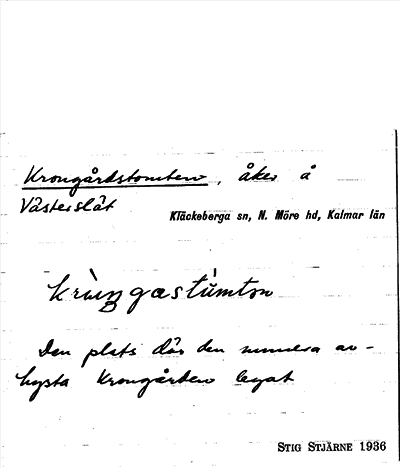 Krongårdstomten, åker å
Västerslät
Kläckeberga sn, N. Möre hd, Kalmar län
krùŋgastùmton
Den plats där den numera av-
hysta Krongården legat
STIG STJÄRNE 1936